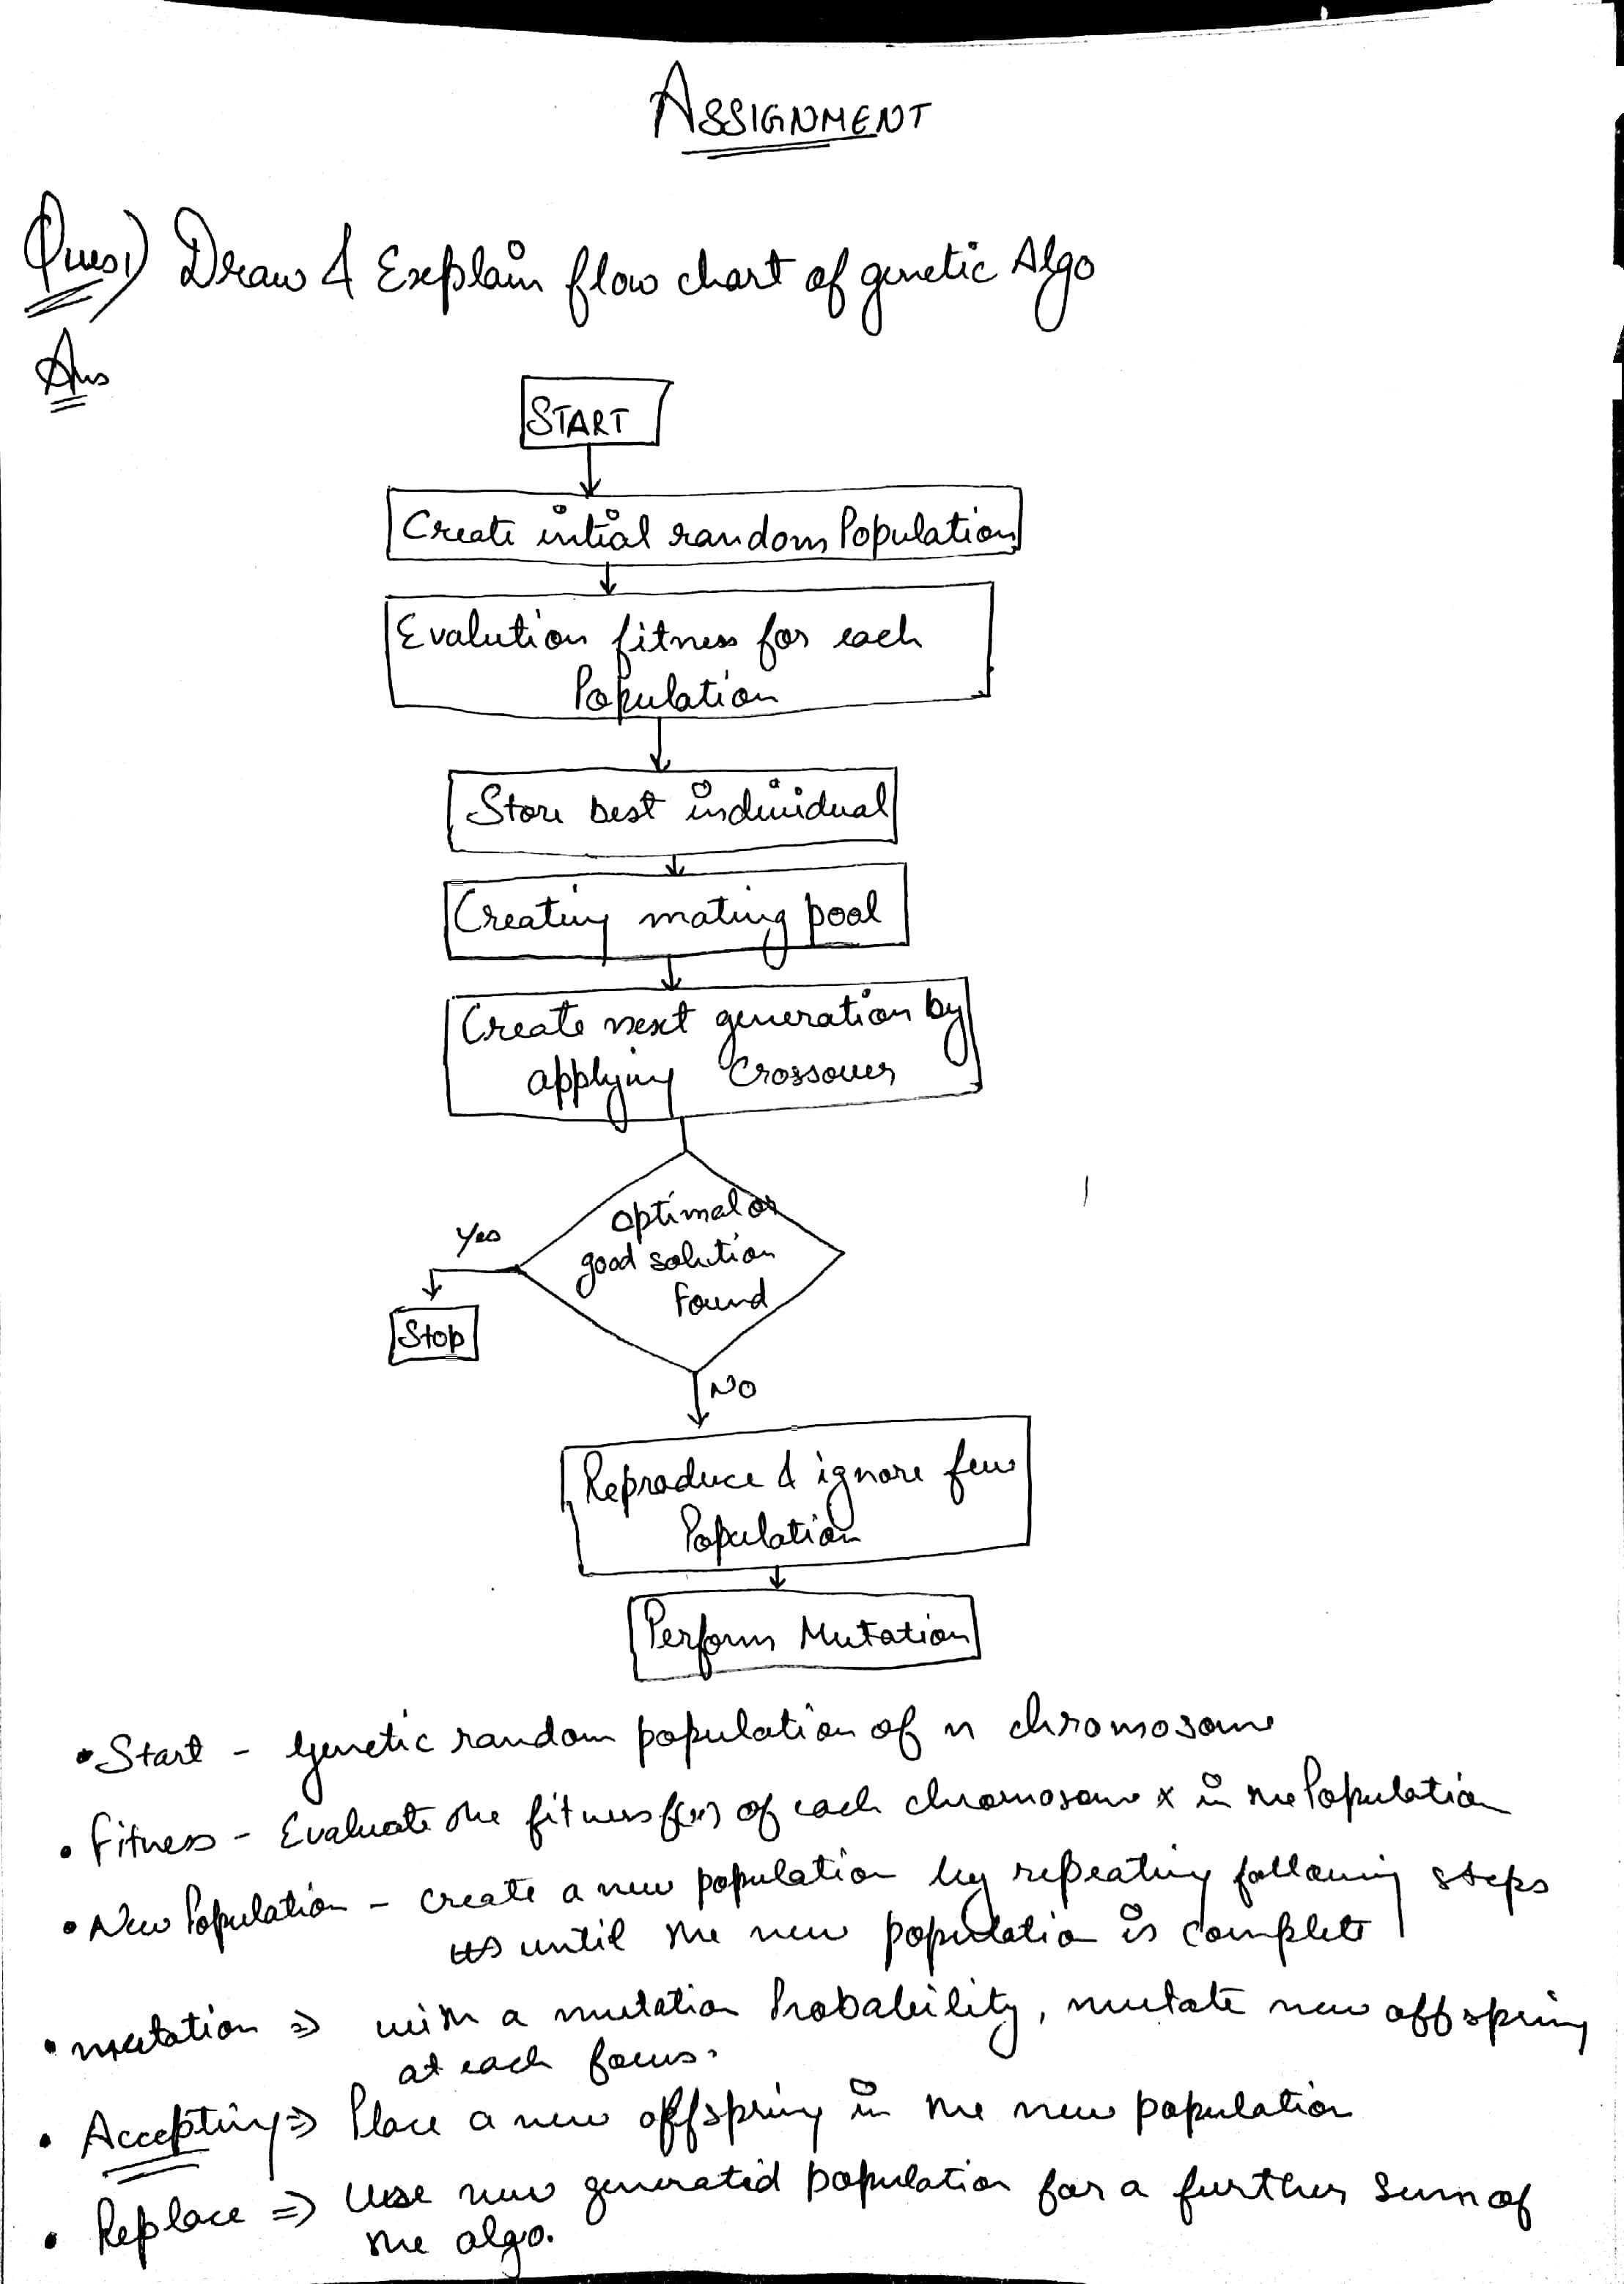 ASSIGNMENT
Ques1) Draw & Explain flow chart of genetic Algo
Ans
START
Create intial random Population
Evalution fitness for each
Population
Store best individual
Creating mating pool
Create next generation by
applying Crossover
optimal or
good solution
found
Yes
Stop
NO
Reproduce & ignore few
Population
Perform Mutation
• Start - genetic random population of n chromosome
• Fitness - Evaluate the fitness f(x) of each chromosome x in the Population
• New Population - create a new population by repeating following steps
until the new population is complete
• mutation ⇒ with a mutation Probability, mutate new offspring
at each focus.
• Accepting ⇒ Place a new offspring in the new population
• Replace ⇒ Use new generated population for a further sum of
the algo.